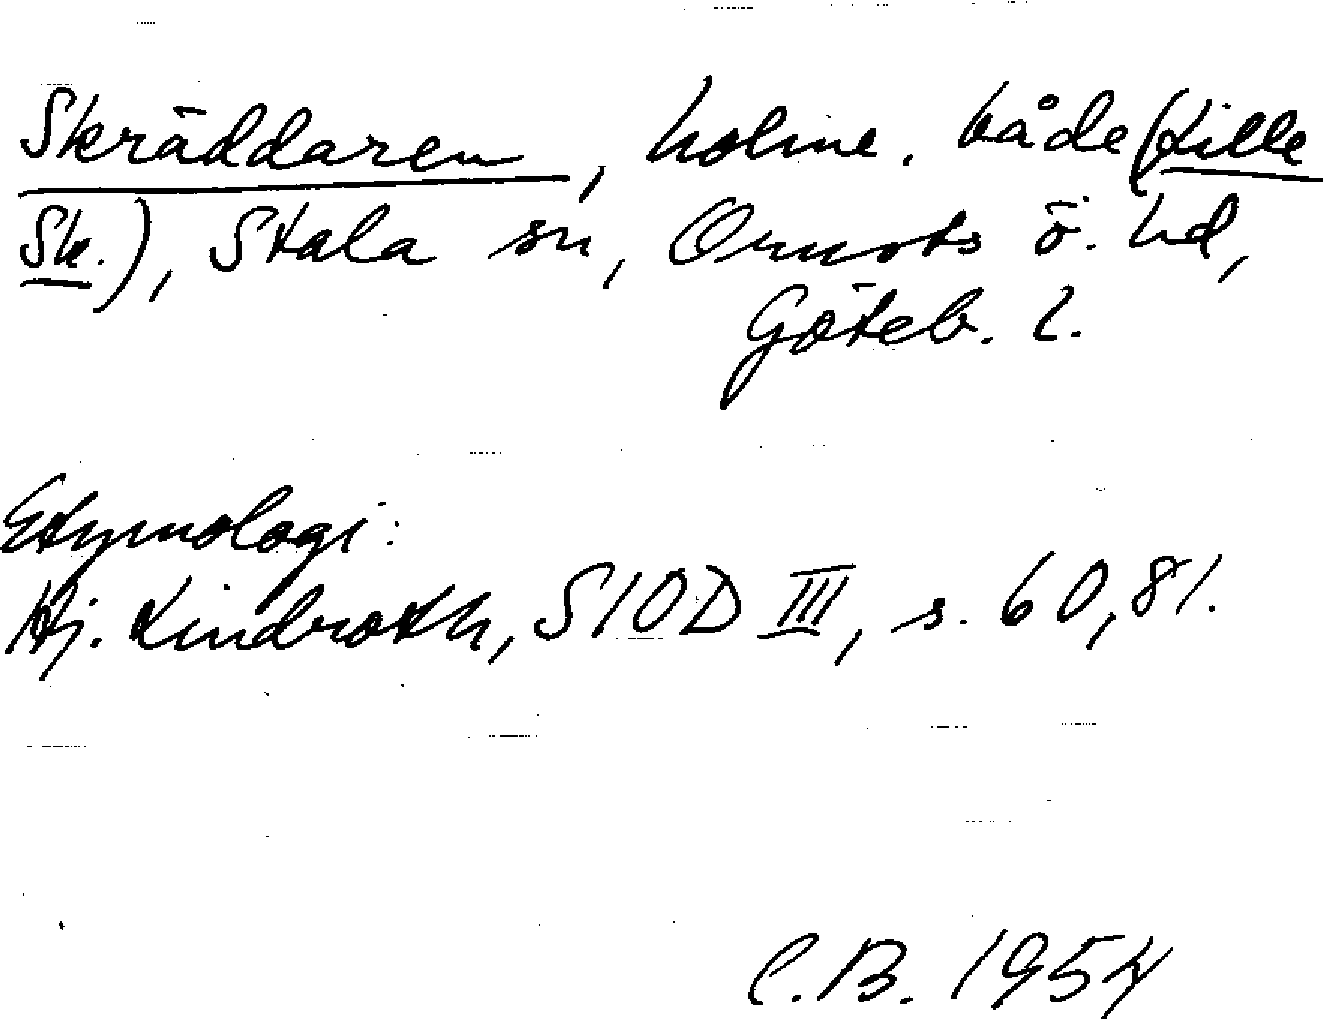 Skräddaren, holme. både (Lille
Sk.), Stala sn, Orusts ö. hd,
Göteb. l.
Etymologi:
Hj. Lindroth, SIOD III, s. 60, 81.
C.B. 1954